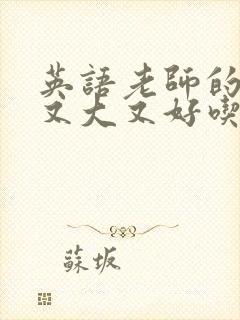 英語老師的
又大又好喫
蘇坂